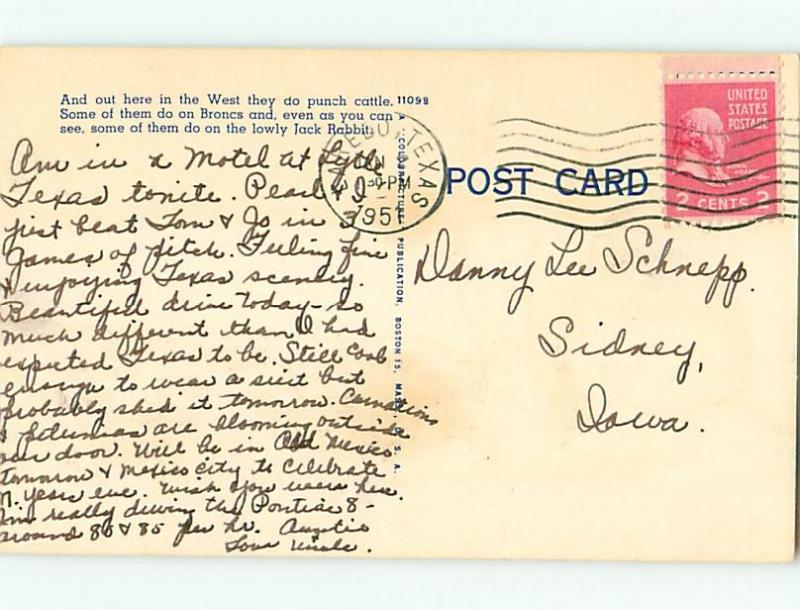 And out here in the West they do punch cattle. 11098
Some of them do on Broncs and, even as you can
see, some of them do on the lowly Jack Rabbit.
Am in a Motel at Lytle
Texas tonite. Pearl & I
just beat Tom & Jo in 3
games of pitch. Feeling fine
& enjoying Texas scenery.
Beautiful drive today - so
much different than I had
expected Texas to be. Still cool
enough to wear a suit but
probably shed it tomorrow. Carnations
& petunias are blooming outside
our door. Will be in Old Mexico
tomorrow & Mexico city to celebrate
N. Years eve. Wish you were here.
Jim really driving the Pontiac 8 -
around 80 & 85 per hr. Auntie
Uncle.
A "COLORPICTURE" PUBLICATION, BOSTON 15, MASS., U. S. A.
LAREDO, TEXAS
PM
POST CARD
UNITED
STATES
POSTAGE
2 CENTS 2
Danny Lee Schnepp.
Sidney,
Iowa.